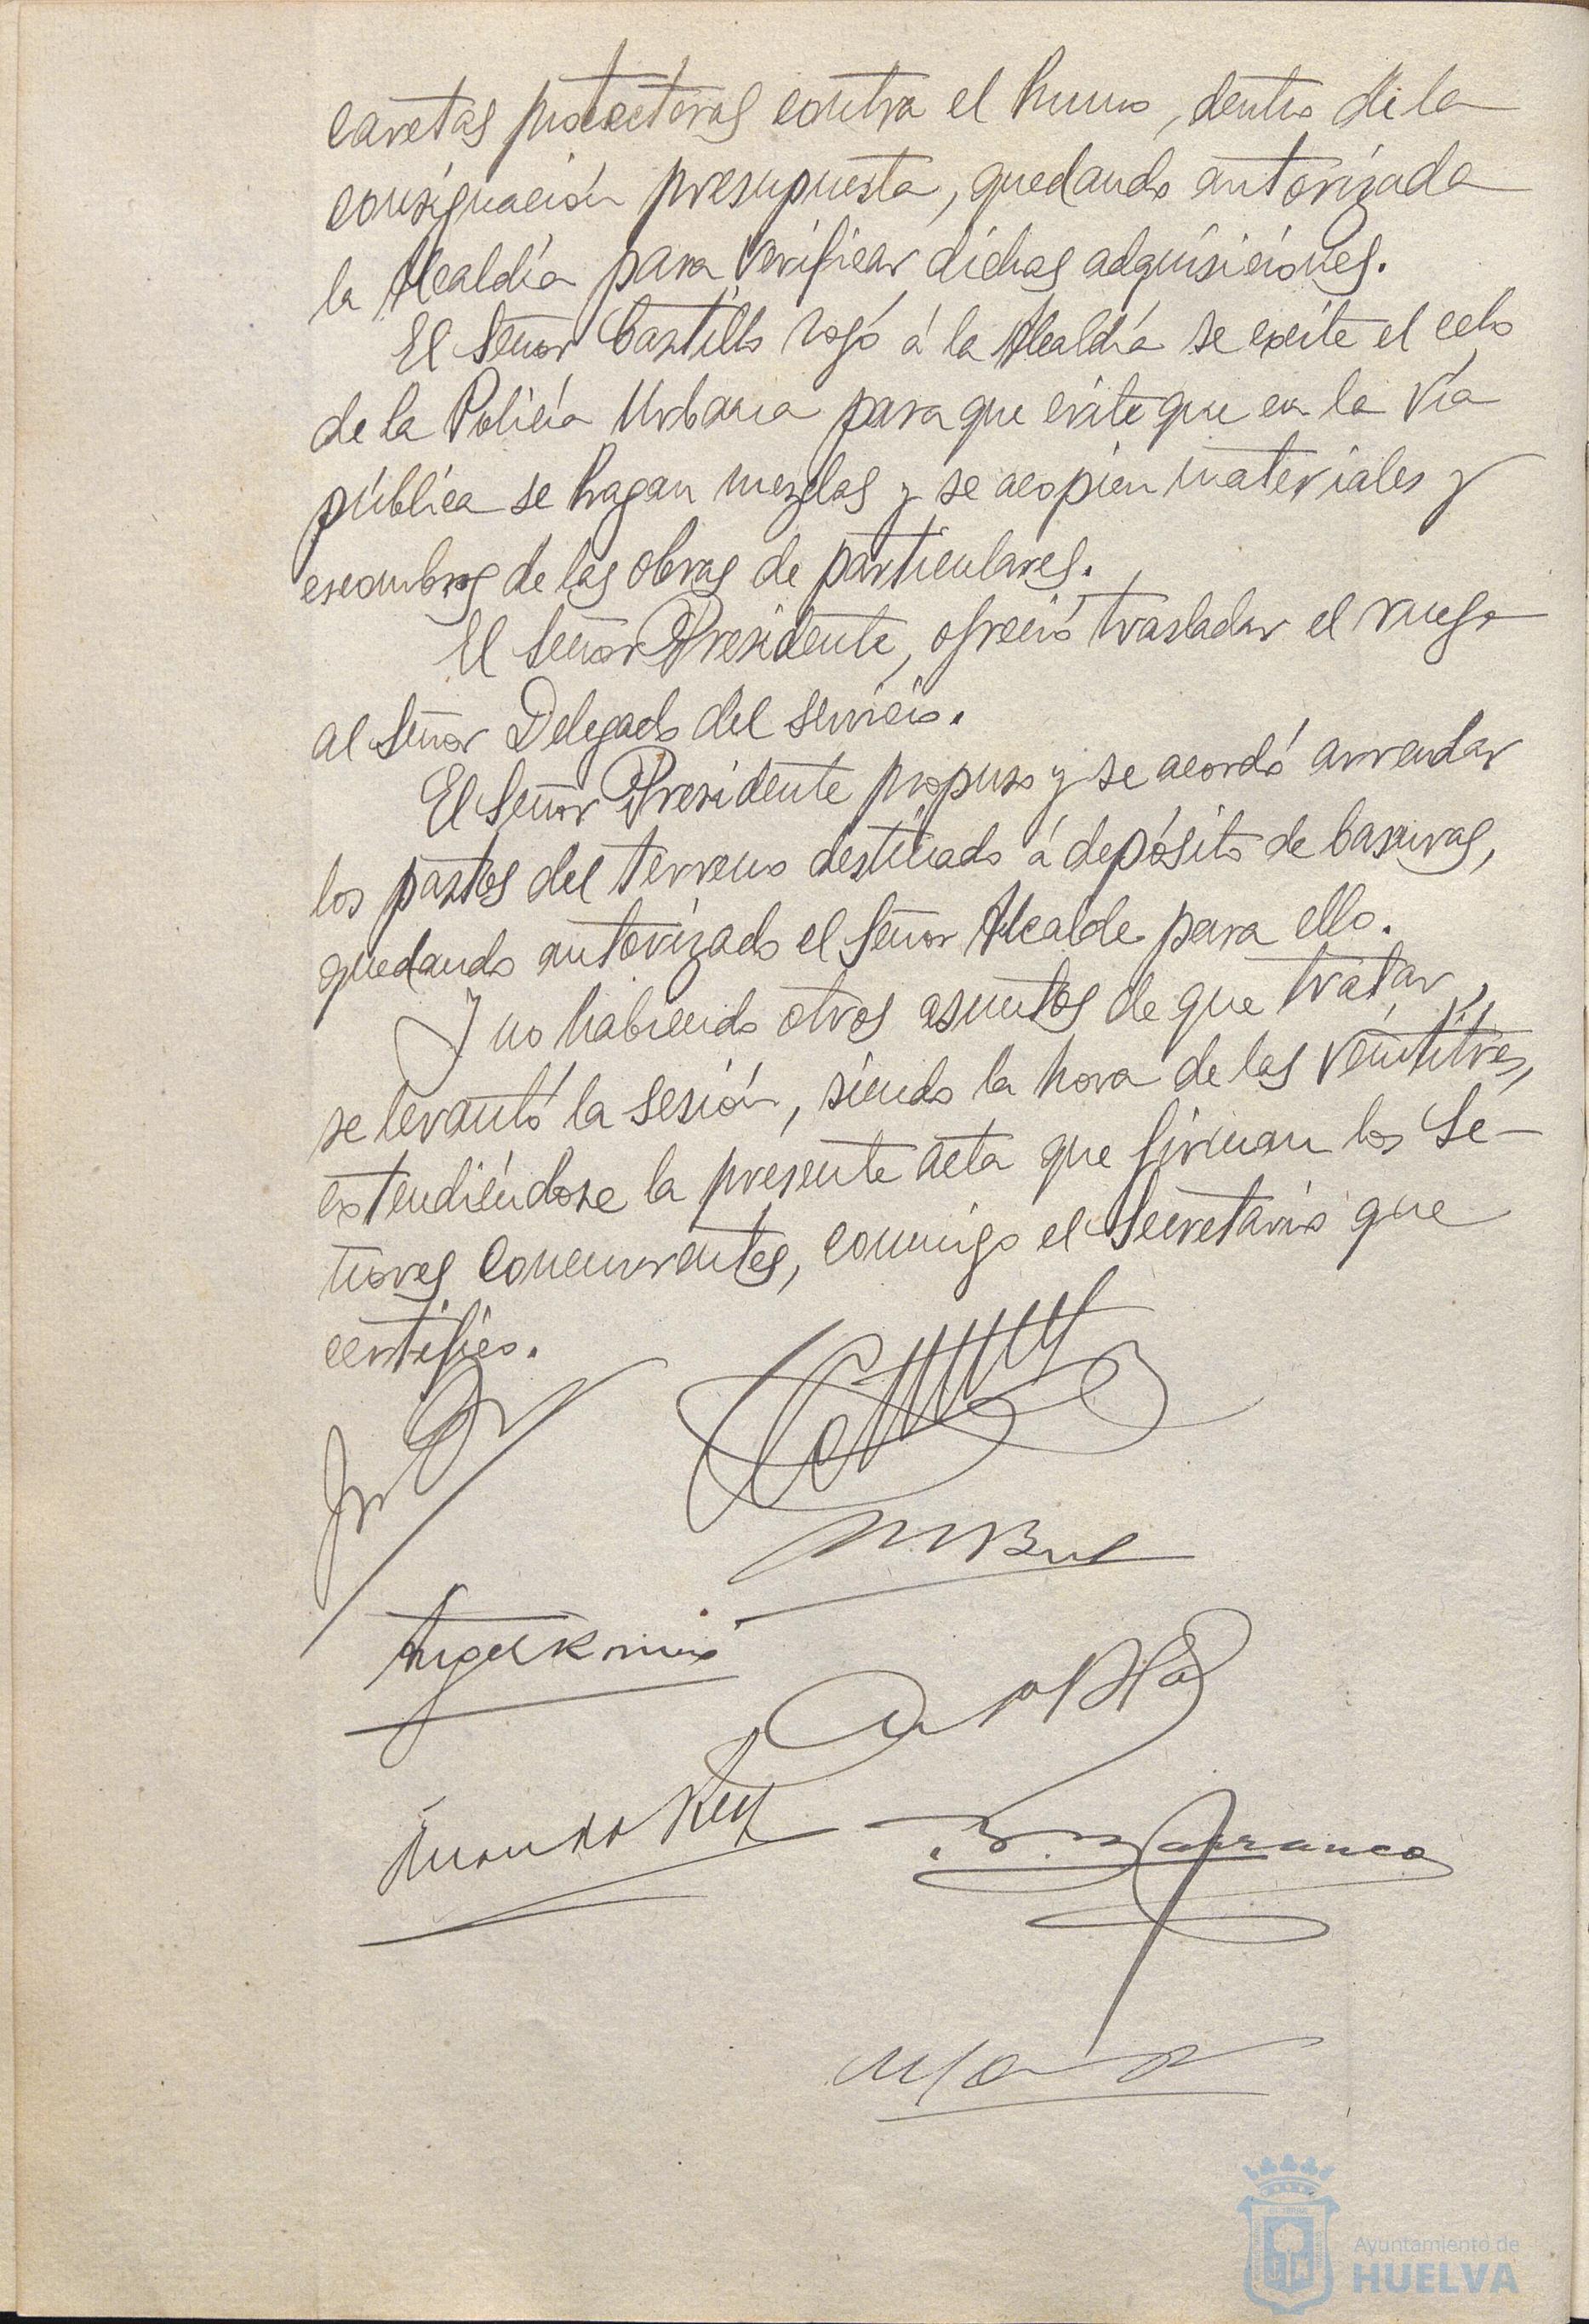 caretas protectoras contra el humo, dentro de la
consignación presupuesta, quedando autorizada
la Alcaldía para verificar dichas adquisiciones.
El Señor Castillo rogó á la Alcaldía se excite el celo
de la Policía Urbana para que evite que en la vía
pública se hagan mezclas y se acopien materiales y
escombros de las obras de particulares.
El Señor Presidente, ofreció trasladar el ruego
al Señor Delegado del servicio.
El Señor Presidente propuso y se acordó arrendar
los pastos del terreno destinado á depósito de basuras,
quedando autorizado el Señor Alcalde para ello.
Y no habiendo otros asuntos de que tratar,
se levantó la sesión, siendo la hora de las veintitrés,
extendiéndose la presente acta que firman los Se-
ñores concurrentes, conmigo el Secretario que
certifico.
Ayuntamiento de
HUELVA